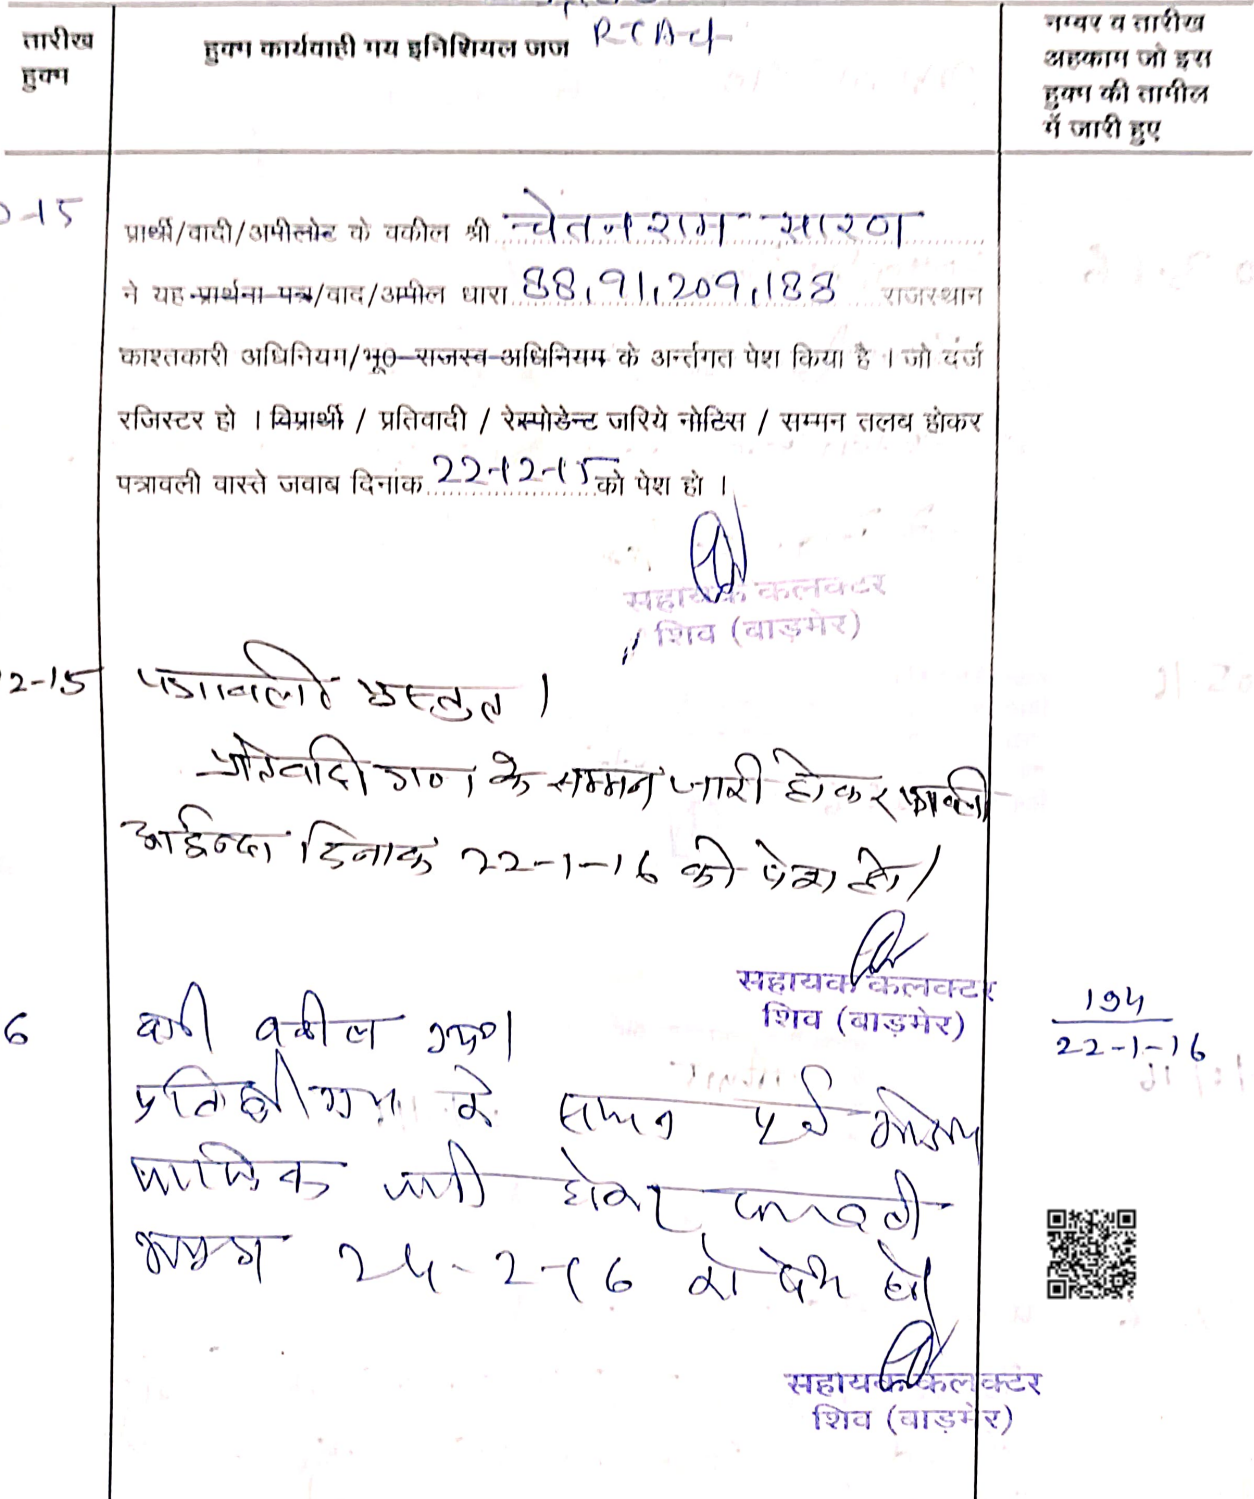 तारीख
हुक्म
हुक्म कार्यवाही मय इनिशियल जज
नम्बर व तारीख
अहकाम जो इस
हुक्म की तामील
में जारी हुए
-15
प्रार्थी/वादी/अपीलोन्ट के वकील श्री चेतनराम सारण
ने यह प्रार्थना पत्र/वाद/अपील धारा 88,91,209,188 राजस्थान
काश्तकारी अधिनियम/भू0 राजस्व अधिनियम के अर्न्तगत पेश किया है । जो दर्ज
रजिस्टर हो । विप्रार्थी / प्रतिवादी / रेस्पोडेन्ट जरिये नोटिस / सम्मन तलब होकर
पत्रावली वास्ते जवाब दिनांक 22-12-15 को पेश हो ।
सहायक कलक्टर
शिव (बाड़मेर)
2-15
पत्रावली प्रस्तुत ।
प्रतिवादीगण के सम्मन जारी होकर
आईन्दा दिनांक 22-1-16 को पेश हो।
सहायक कलक्टर
शिव (बाड़मेर)
6
वकील
194
22-1-16
के
जारी होकर पत्रावली
24-2-16 को पेश हो।
सहायक कलक्टर
शिव (बाड़मेर)